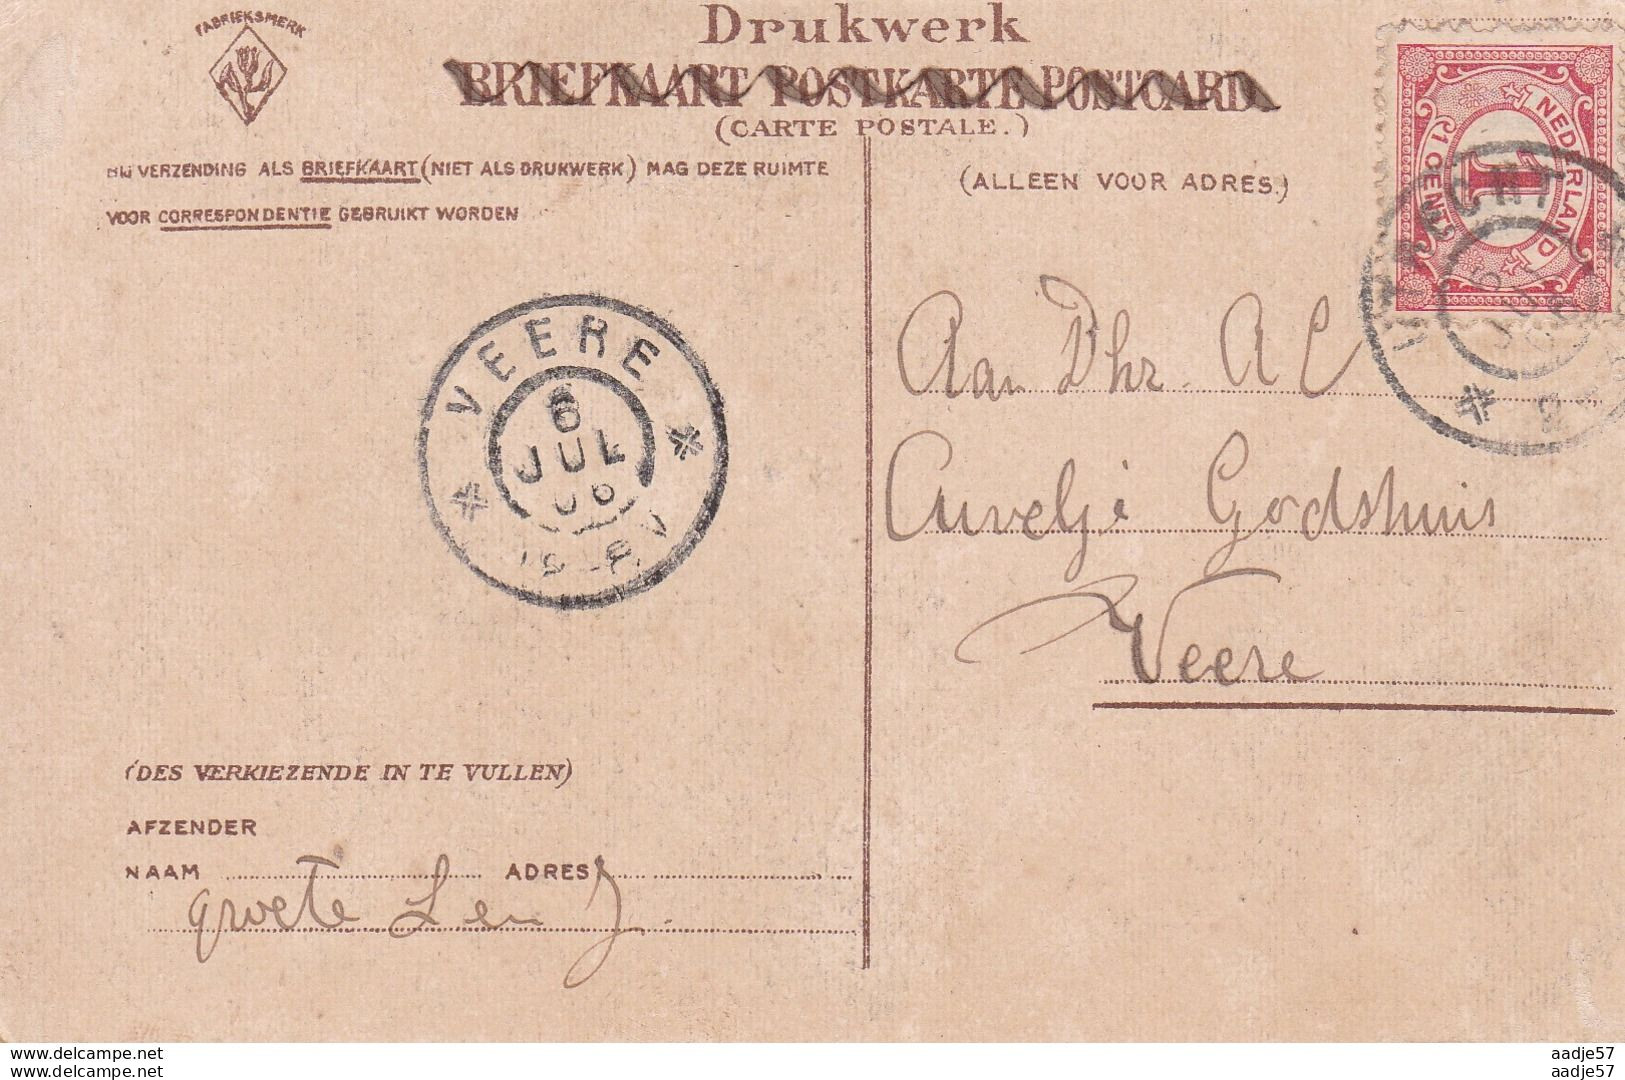 FABRIEKSMERK
Drukwerk
BRIEFKAART POSTKARTE POSTCARD
(CARTE POSTALE.)
BIJ VERZENDING ALS BRIEFKAART (NIET ALS DRUKWERK) MAG DEZE RUIMTE
VOOR CORRESPONDENTIE GEBRUIKT WORDEN
(ALLEEN VOOR ADRES.)
NEDERLAND
1
1 CENT
VEERE
6
JUL
06
Aan Dhr. A C
Godshuis
Veere
(DES VERKIEZENDE IN TE VULLEN)
AFZENDER
NAAM ADRES
groete Len J.
www.delcampe.net aadje57
www.delcampe.net aadje57